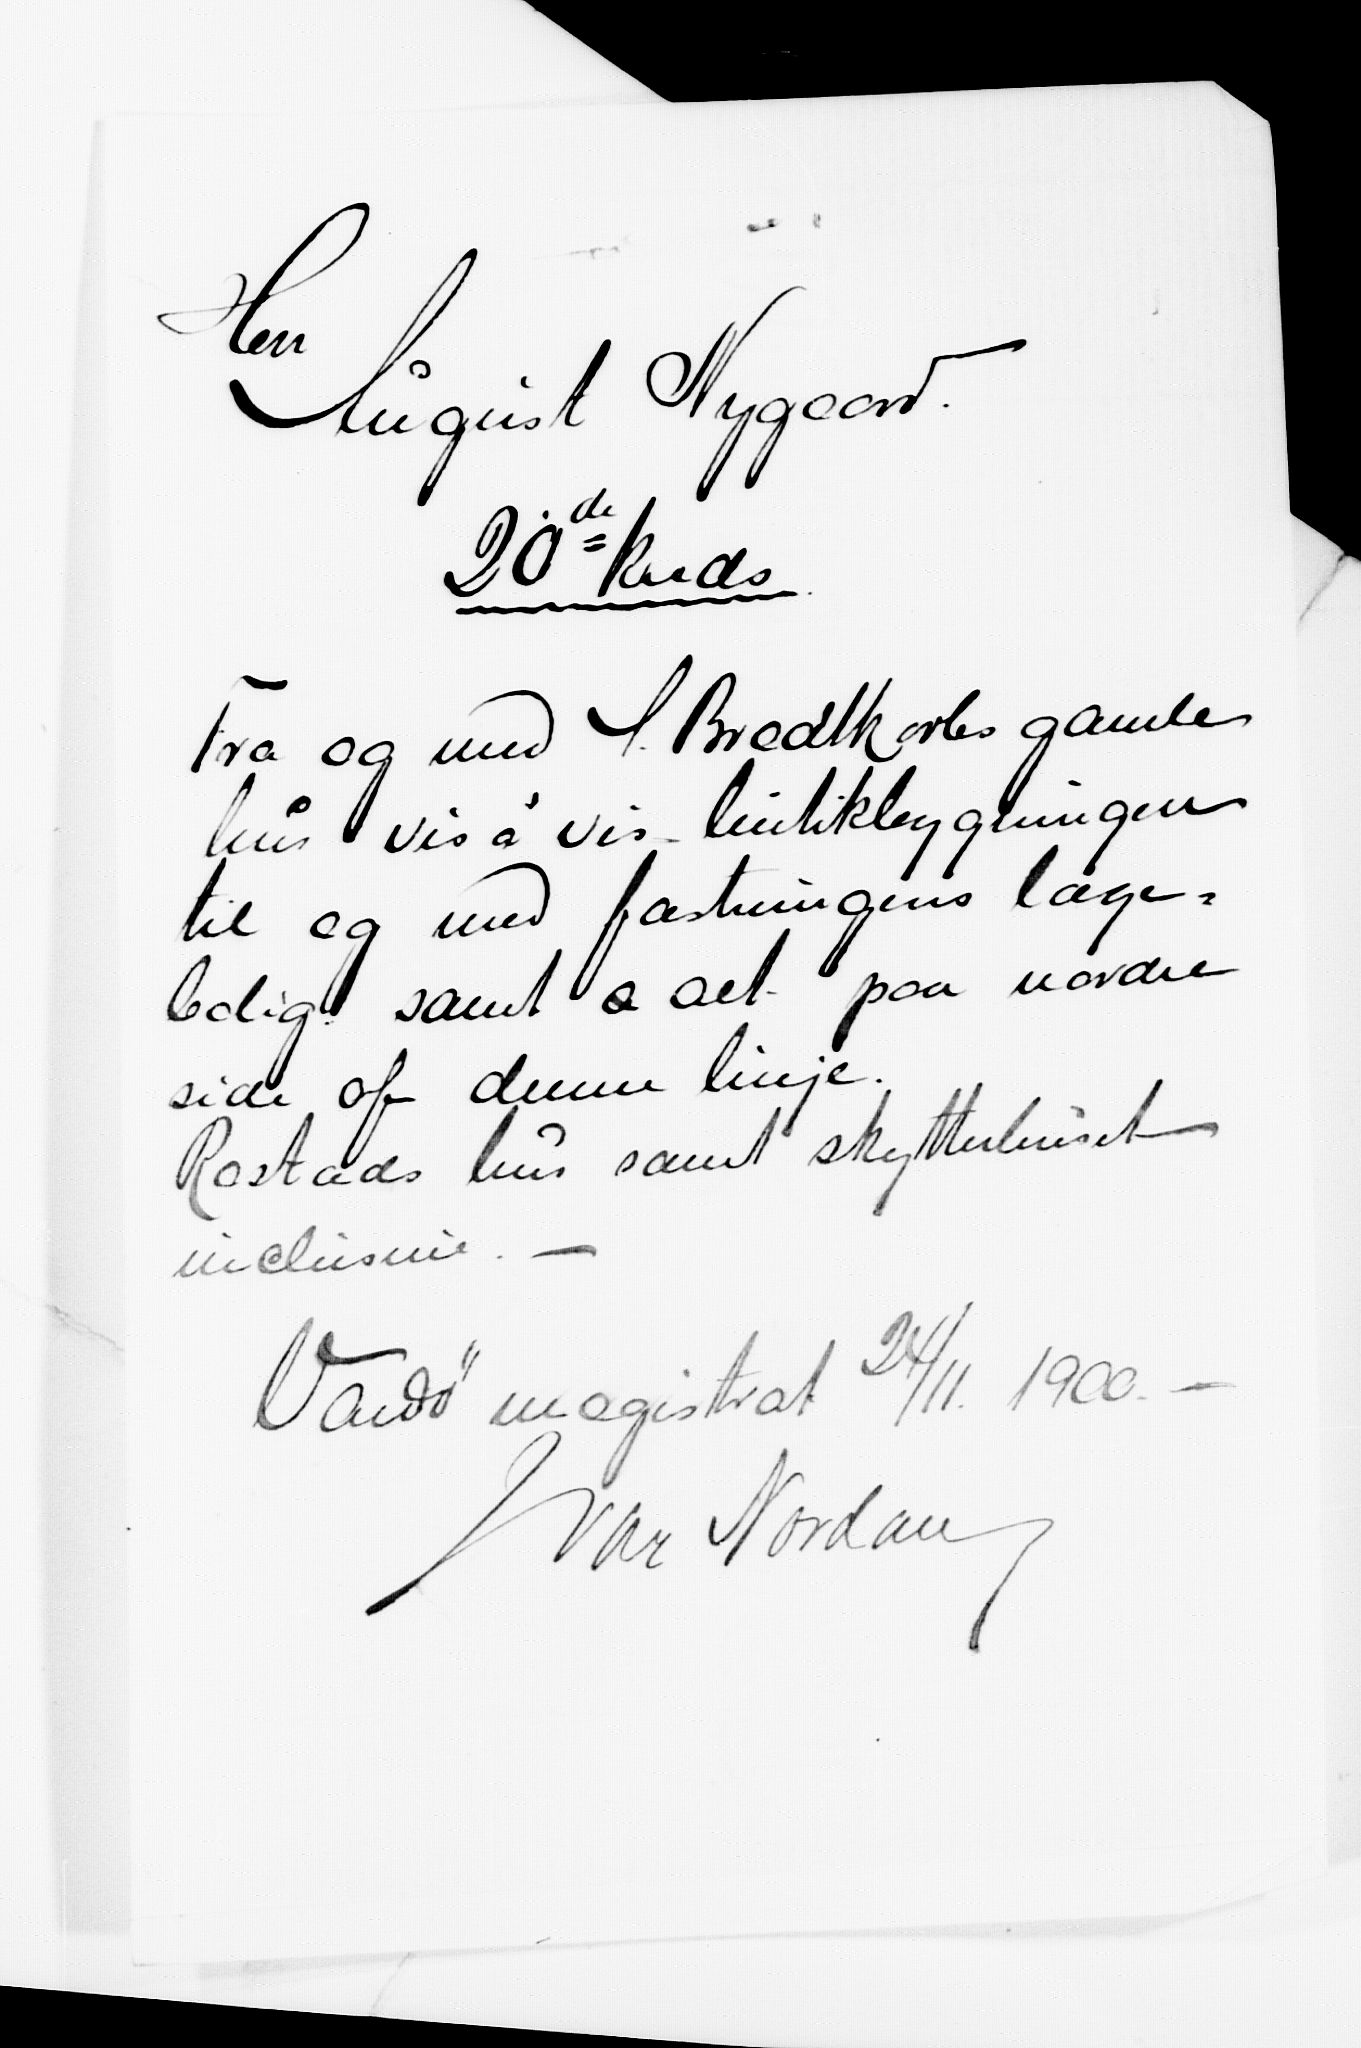 Herr
August Nygaard.
20de kreds
Fra og med S. Bredtkorbs gamle
hus vis á vis butikbygningen
til og med fæstningens læge=
bolig samt alt paa nordre
side af denne linje.
Rostads hus samt skytterhuset
inclusive. —
Vardö magistrat 24/11. 1900. —
Ivar Nordan